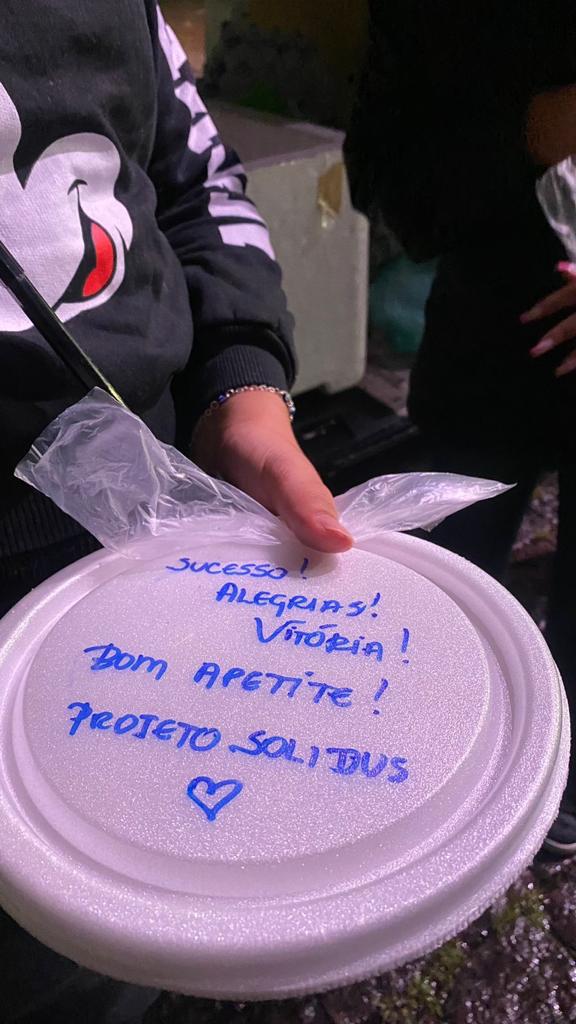 SUCESSO!
ALEGRIAS!
VITÓRIA!
BOM APETITE!
PROJETO SOLIDUS